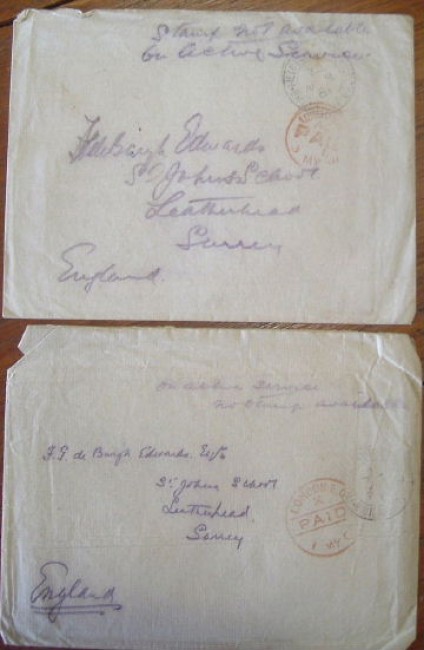 Stamp not available
On Active Service
PAID
MY
F de Burgh Edwards
St Johns School
Leatherhead
Surrey
England.
On active Service
No Stamp available
F. G. de Burgh Edwards. Esq
St Johns School
Leatherhead.
Surrey
LONDON
PAID
MY
England